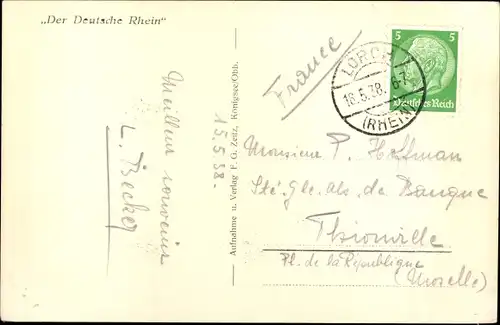 „Der Deutsche Rhein"
Meilleur souvenir
L. Becker
15.5.38.
Aufnahme u. Verlag F. G. Zeitz, Königsee/Thb.
France
LORCH
16.5.38. 6-7
(RHEIN)
5 5
Deutsches Reich
Monsieur P. Hoffman
Sté. Gle. als. de Banque
Thionville
Pl. de la République
(Moselle)